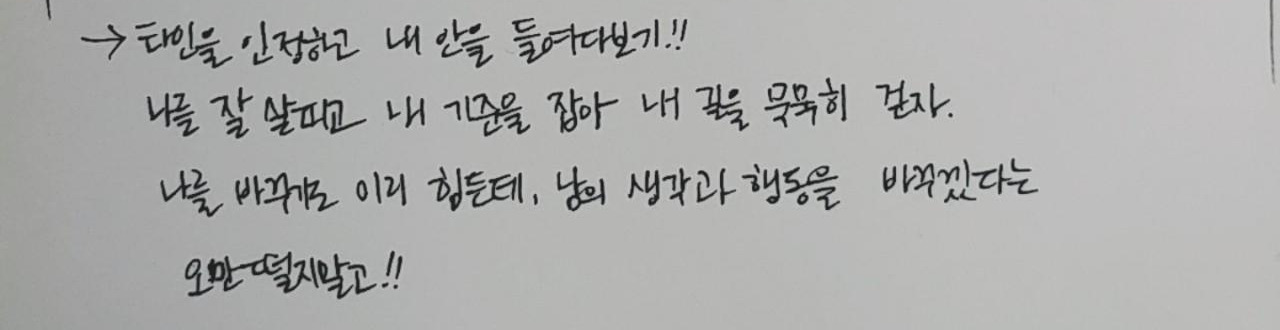 → 타인을 인정하고 내 안을 들여다보기!!
나를 잘 살피고 내 기준을 잡아 내 길을 묵묵히 걷자.
나를 바꾸기도 이리 힘든데, 남의 생각과 행동을 바꾸겠다는
오만 떨지말고!!